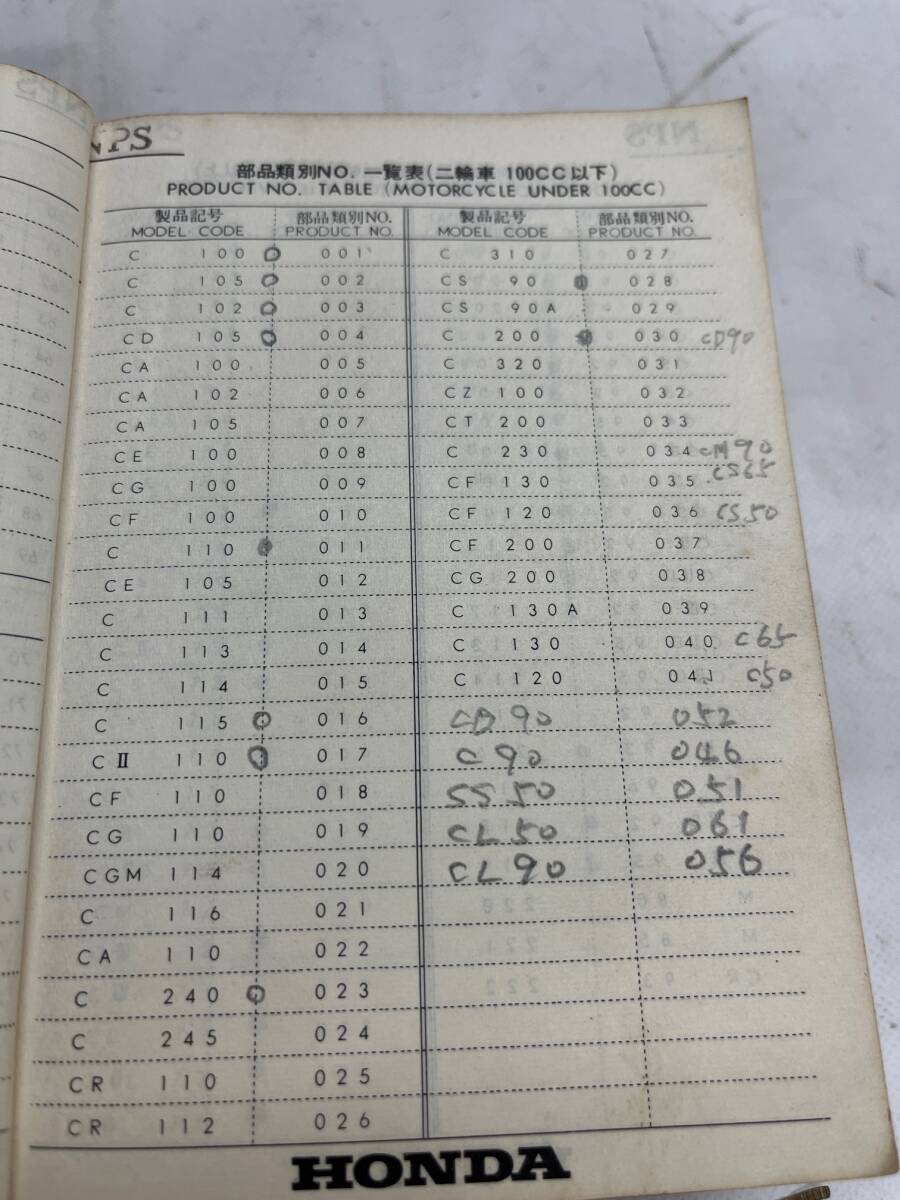 NPS
部品類別NO. 一覧表(二輪車 100CC以下)
PRODUCT NO. TABLE (MOTORCYCLE UNDER 100CC)
製品記号 部品類別NO. 製品記号 部品類別NO.
MODEL CODE PRODUCT NO. MODEL CODE PRODUCT NO.
C 100 001 C 310 027
C 105 002 CS 90 028
C 102 003 CS 90A 029
CD 105 004 C 200 030 CD90
CA 100 005 C 320 031
CA 102 006 CZ 100 032
CA 105 007 CT 200 033
CE 100 008 C 230 034 CM90
CG 100 009 CF 130 035 CS65
CF 100 010 CF 120 036 CS50
C 110 011 CF 200 037
CE 105 012 CG 200 038
C 111 013 C 130A 039
C 113 014 C 130 040 C65
C 114 015 C 120 041 C50
C 115 016 CD90 052
CⅡ 110 017 C90 046
CF 110 018 SS50 051
CG 110 019 CL50 061
CGM 114 020 CL90 056
C 116 021
CA 110 022
C 240 023
C 245 024
CR 110 025
CR 112 026
HONDA